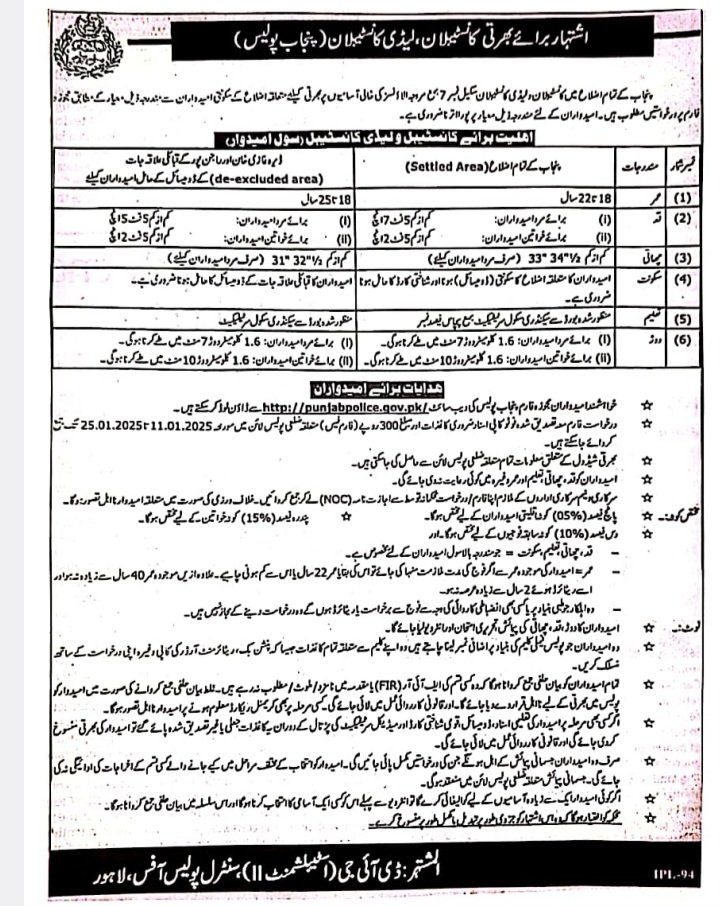 اشتہار برائے بھرتی کانسٹیبلان، لیڈی کانسٹیبلان (پنجاب پولیس)
پنجاب کے تمام اضلاع میں کانسٹیبلان و لیڈی کانسٹیبلان سکیل نمبر 7 بمع مروجہ الاؤنسز کی خالی آسامیوں پر بھرتی کیلئے متعلقہ اضلاع کے سکونتی امیدواران سے مندرجہ ذیل معیار کے مطابق مجوزہ
فارم پر درخواستیں مطلوب ہیں۔ امیدواران کے لئے مندرجہ ذیل معیار پر پورا اترنا ضروری ہے۔
اہلیت برائے کانسٹیبل و لیڈی کانسٹیبل (سول امیدوار)
نمبر شمار مندرجات پنجاب کے تمام اضلاع (Settled Area) ڈیرہ غازی خان اور راجن پور کے قبائلی علاقہ جات
(de-excluded area) کے ڈومیسائل کے حامل امیدواران کیلئے
(1) عمر 18 تا 22 سال 18 تا 25 سال
(2) قد (i) برائے مرد امیدواران: کم از کم 5 فٹ 7 انچ (i) برائے مرد امیدواران: کم از کم 5 فٹ 5 انچ
(ii) برائے خواتین امیدواران: کم از کم 5 فٹ 2 انچ (ii) برائے خواتین امیدواران: کم از کم 5 فٹ 2 انچ
(3) چھاتی کم از کم 33" 34½" (صرف مرد امیدواران کیلئے) کم از کم 31" 32½" (صرف مرد امیدواران کیلئے)
(4) سکونت امیدواران کا متعلقہ اضلاع کا سکونتی (ڈومیسائل) ہونا اور شناختی کارڈ کا حامل ہونا ضروری ہے۔ امیدواران کا قبائلی علاقہ جات کے ڈومیسائل کا حامل ہونا ضروری ہے۔
(5) تعلیم منظور شدہ بورڈ سے سیکنڈری سکول سرٹیفکیٹ بمع پچاس فیصد نمبر منظور شدہ بورڈ سے سیکنڈری سکول سرٹیفکیٹ
(6) دوڑ (i) برائے مرد امیدواران: 1.6 کلومیٹر دوڑ 7 منٹ میں طے کرنا ہوگی۔ (i) برائے مرد امیدواران: 1.6 کلومیٹر دوڑ 7 منٹ میں طے کرنا ہوگی۔
(ii) برائے خواتین امیدواران: 1.6 کلومیٹر دوڑ 10 منٹ میں طے کرنا ہوگی۔ (ii) برائے خواتین امیدواران: 1.6 کلومیٹر دوڑ 10 منٹ میں طے کرنا ہوگی۔
ہدایات برائے امیدواران
خواہشمند امیدواران مجوزہ فارم پنجاب پولیس کی ویب سائٹ http://punjabpolice.gov.pk/ سے ڈاؤن لوڈ کر سکتے ہیں۔
درخواست فارم معہ تصدیق شدہ فوٹو کاپی اسناد ضروری کاغذات اور مبلغ 300 روپے (فارم فیس) متعلقہ ضلعی پولیس لائن میں مورخہ 11.01.2025 تا 25.01.2025 تک جمع
کروائے جا سکتے ہیں۔
بھرتی شیڈول کے متعلق معلومات تمام متعلقہ ضلعی پولیس لائن سے حاصل کی جا سکتی ہیں۔
امیدواران کو قد، چھاتی، تعلیم اور عمر وغیرہ میں کوئی رعایت نہ دی جائے گی۔
سرکاری و نیم سرکاری اداروں کے ملازم اپنا فارم/درخواست محکمانہ توسط سے اجازت نامہ (NOC) لے کر جمع کروائیں۔ خلاف ورزی کی صورت میں متعلقہ امیدوار نا اہل تصور ہوگا۔
مختص کوٹہ:۔ پانچ فیصد (05%) کوٹہ اقلیتی امیدواران کے لیے مختص ہوگا۔ پندرہ فیصد (15%) کوٹہ خواتین کے لیے مختص ہوگا۔
دس فیصد (10%) کوٹہ سابقہ فوجیوں کے لیے مختص ہوگا۔ اور
– قد، چھاتی، تعلیم، سکونت = جو مندرجہ بالا سول امیدواران کے لئے مخصوص ہے۔
– عمر = امیدوار کی موجودہ عمر سے اگر فوج کی مدت ملازمت منہا کی جائے تو اس کی بقایا عمر 22 سال یا اس سے کم ہونی چاہیے۔ علاوہ ازیں موجودہ عمر 40 سال سے زیادہ نہ ہو اور
اسے ریٹائرڈ ہوئے 2 سال سے زیادہ عرصہ نہ ہو۔
– وہ اہلکار جو طبی بنیاد پر یا کسی بھی انضباطی کاروائی کی وجہ سے فوج سے برخاست یا ریٹائرڈ ہوں گے وہ درخواست دینے کے مجاز نہیں ہیں۔
نوٹ:۔ امیدواران کا دوڑ، قد، چھاتی کی پیمائش، تحریری امتحان اور انٹرویو لیا جائے گا۔
وہ امیدواران جو پولیس فیملی کلیم کی بنیاد پر اضافی نمبر لینا چاہتے ہیں وہ اپنے کلیم سے متعلقہ تمام کاغذات جیسا کہ پنشن بک، ریٹائرمنٹ آرڈر کی کاپی وغیرہ اپنی درخواست کے ساتھ
منسلک کریں۔
تمام امیدواران کو بیان حلفی جمع کروانا ہوگا کہ وہ کسی قسم کی ایف آئی آر (FIR) یا مقدمہ میں نامزد/ملوث/مطلوب نہ رہے ہیں۔ غلط بیان حلفی جمع کروانے کی صورت میں امیدوار کو
پولیس میں بھرتی کے لیے نا اہل قرار دے دیا جائے گا۔ اور قانونی کارروائی عمل میں لائی جائے گی۔ کسی مرحلہ پر بھی کریمنل ریکارڈ معلوم ہونے پر امیدوار نا اہل تصور ہوگا۔
اگر کسی بھی مرحلہ پر امیدوار کی تعلیمی اسناد، ڈومیسائل، قومی شناختی کارڈ اور میڈیکل سرٹیفکیٹ کی پڑتال کے دوران یہ کاغذات جعلی یا غیر تصدیق شدہ پائے گئے تو امیدوار کی بھرتی منسوخ
کر دی جائے گی اور قانونی کارروائی عمل میں لائی جائے گی۔
صرف وہ امیدواران جسمانی پیمائش کے اہل ہوں گے جن کی درخواستیں مکمل پائی جائیں گی۔ امیدوار کو انتخاب کے مختلف مراحل میں کیے جانے والے کسی قسم کے اخراجات کی ادائیگی نہ کی
جائے گی۔ جسمانی پیمائش متعلقہ ضلعی پولیس لائن میں منعقد ہوگی۔
اگر کوئی امیدوار ایک سے زیادہ آسامیوں کے لیے کوالیفائی کرے گا تو انٹرویو سے پہلے اس کو کسی ایک آسامی کا انتخاب کرنا ہوگا اور اس سلسلہ میں بیان حلفی جمع کروانا ہوگا۔
محکمہ کو اختیار ہوگا کہ وہ اس اشتہار کو جزوی طور پر تبدیل یا مکمل طور پر منسوخ کر دے۔
المشتہر: ڈی آئی جی (اسٹیبلشمنٹ II) سنٹرل پولیس آفس، لاہور
IPL-94